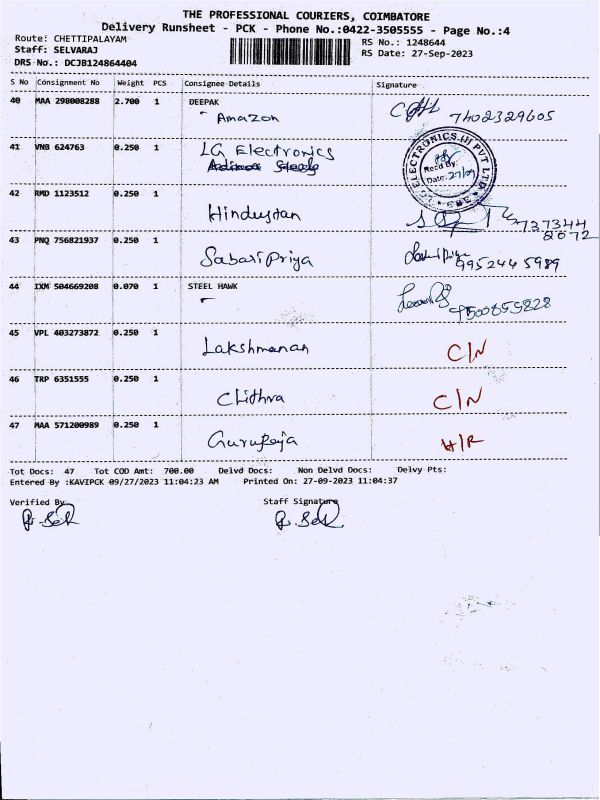 THE PROFESSIONAL COURIERS, COIMBATORE
Delivery Runsheet - PCK - Phone No.:0422-3505555 - Page No.:4
Route: CHETTIPALAYAM
RS No.: 1248644
Staff: SELVARAJ
RS Date: 27-Sep-2023
DRS No.: DCJB124864404
S No Consignment No Weight PCS Consignee Details Signature
40 MAA 298008288 2.700 1 DEEPAK
Amazon 7402329605
41 VNB 624763 0.250 1 LG Electronics
LG ELECTRONICS (I) PVT LTD
Recd By:
Date: 27/9
42 RMD 1123512 0.250 1
Hindustan
737344
2072
43 PNQ 756821937 0.250 1
SabariPriya 9952445989
44 IXM 504669208 0.070 1 STEEL HAWK
9500855828
45 VPL 403273872 0.250 1
Lakshmanan C/N
46 TRP 6351555 0.250 1
Chithra C/N
47 MAA 571200989 0.250 1
GuruRaja H/R
Tot Docs: 47 Tot COD Amt: 700.00 Delvd Docs: Non Delvd Docs: Delvy Pts:
Entered By :KAVIPCK 09/27/2023 11:04:23 AM Printed On: 27-09-2023 11:04:37
Verified By Staff Signature